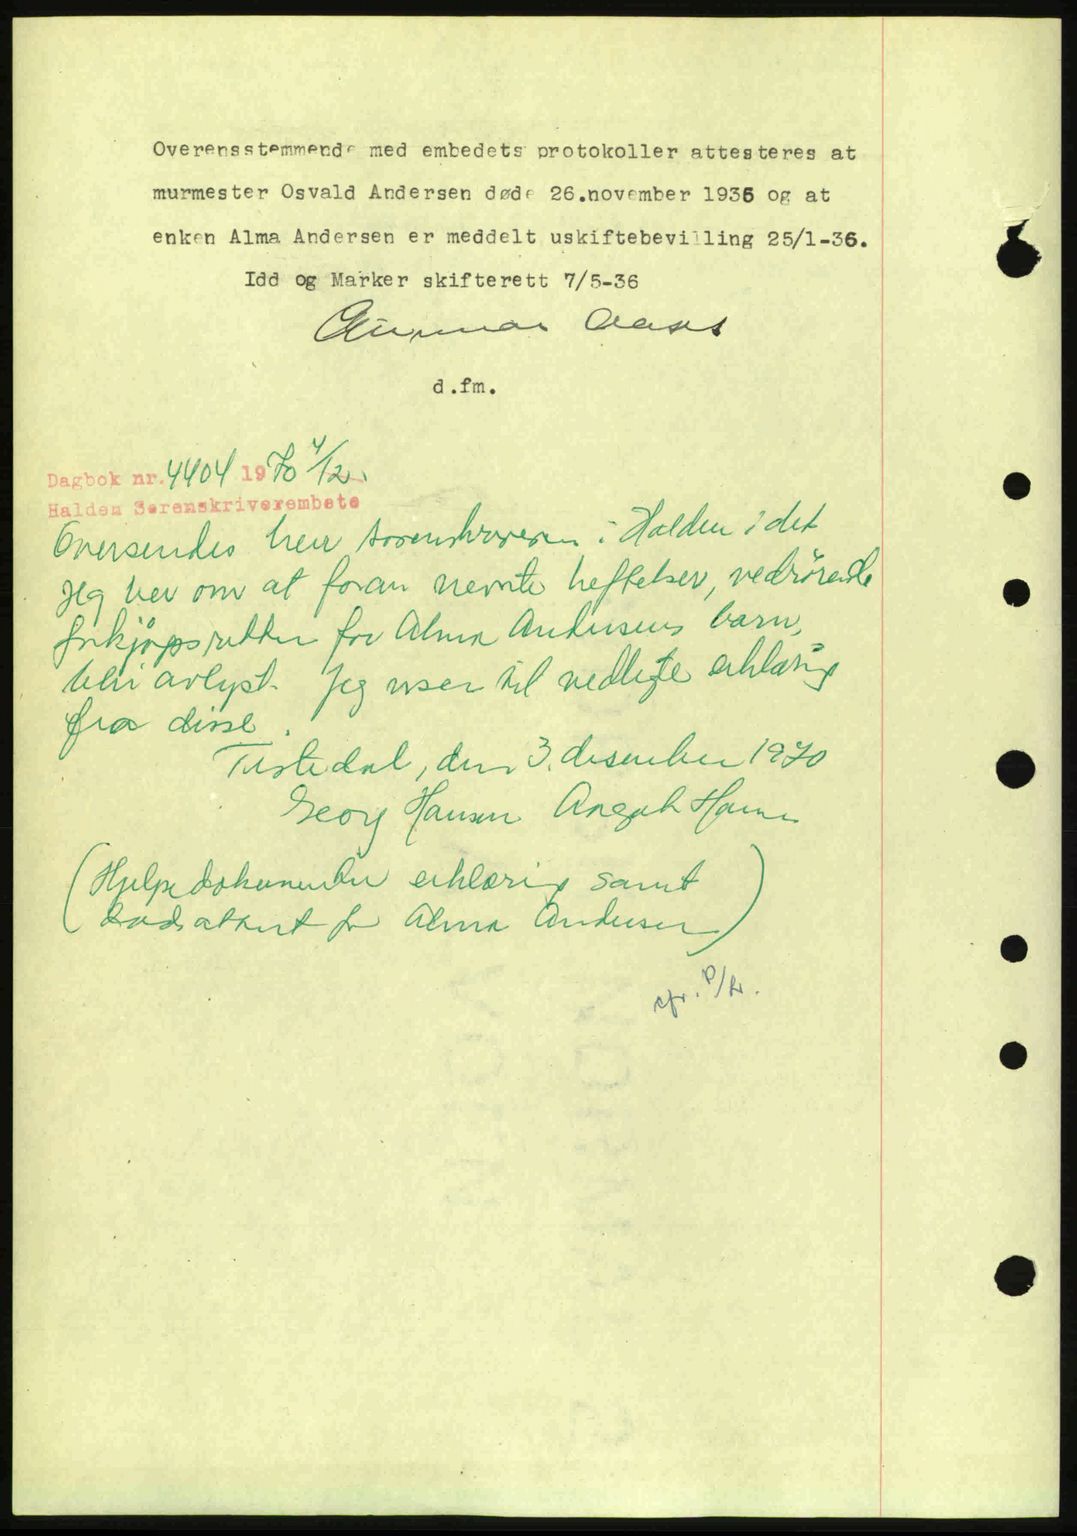 Overensstemmende med embedets protokoller attesteres at
murmester Osvald Andersen døde 26.november 1936 og at
enken Alma Andersen er meddelt uskiftebevilling 25/1-36.
Idd og Marker skifterett 7/5-36
Gunnar Aaass
d.fm.
Dagbok nr. 4404 1970 4/12.
Halden Sorenskriverembete
Oversendes herr sorenskriveren i Halden i det
jeg ber om at foran nevnte heftelser, vedrørende
forkjøpsretten for Alma Andersens barn,
blir avlyst. Jeg viser til vedlagte erklæring
fra disse.
Tistedal, den 3. desember 1970
Georg Hansen Hansen
(Hjelpedokumenter erklæring samt
dødsattest for Alma Andersen)